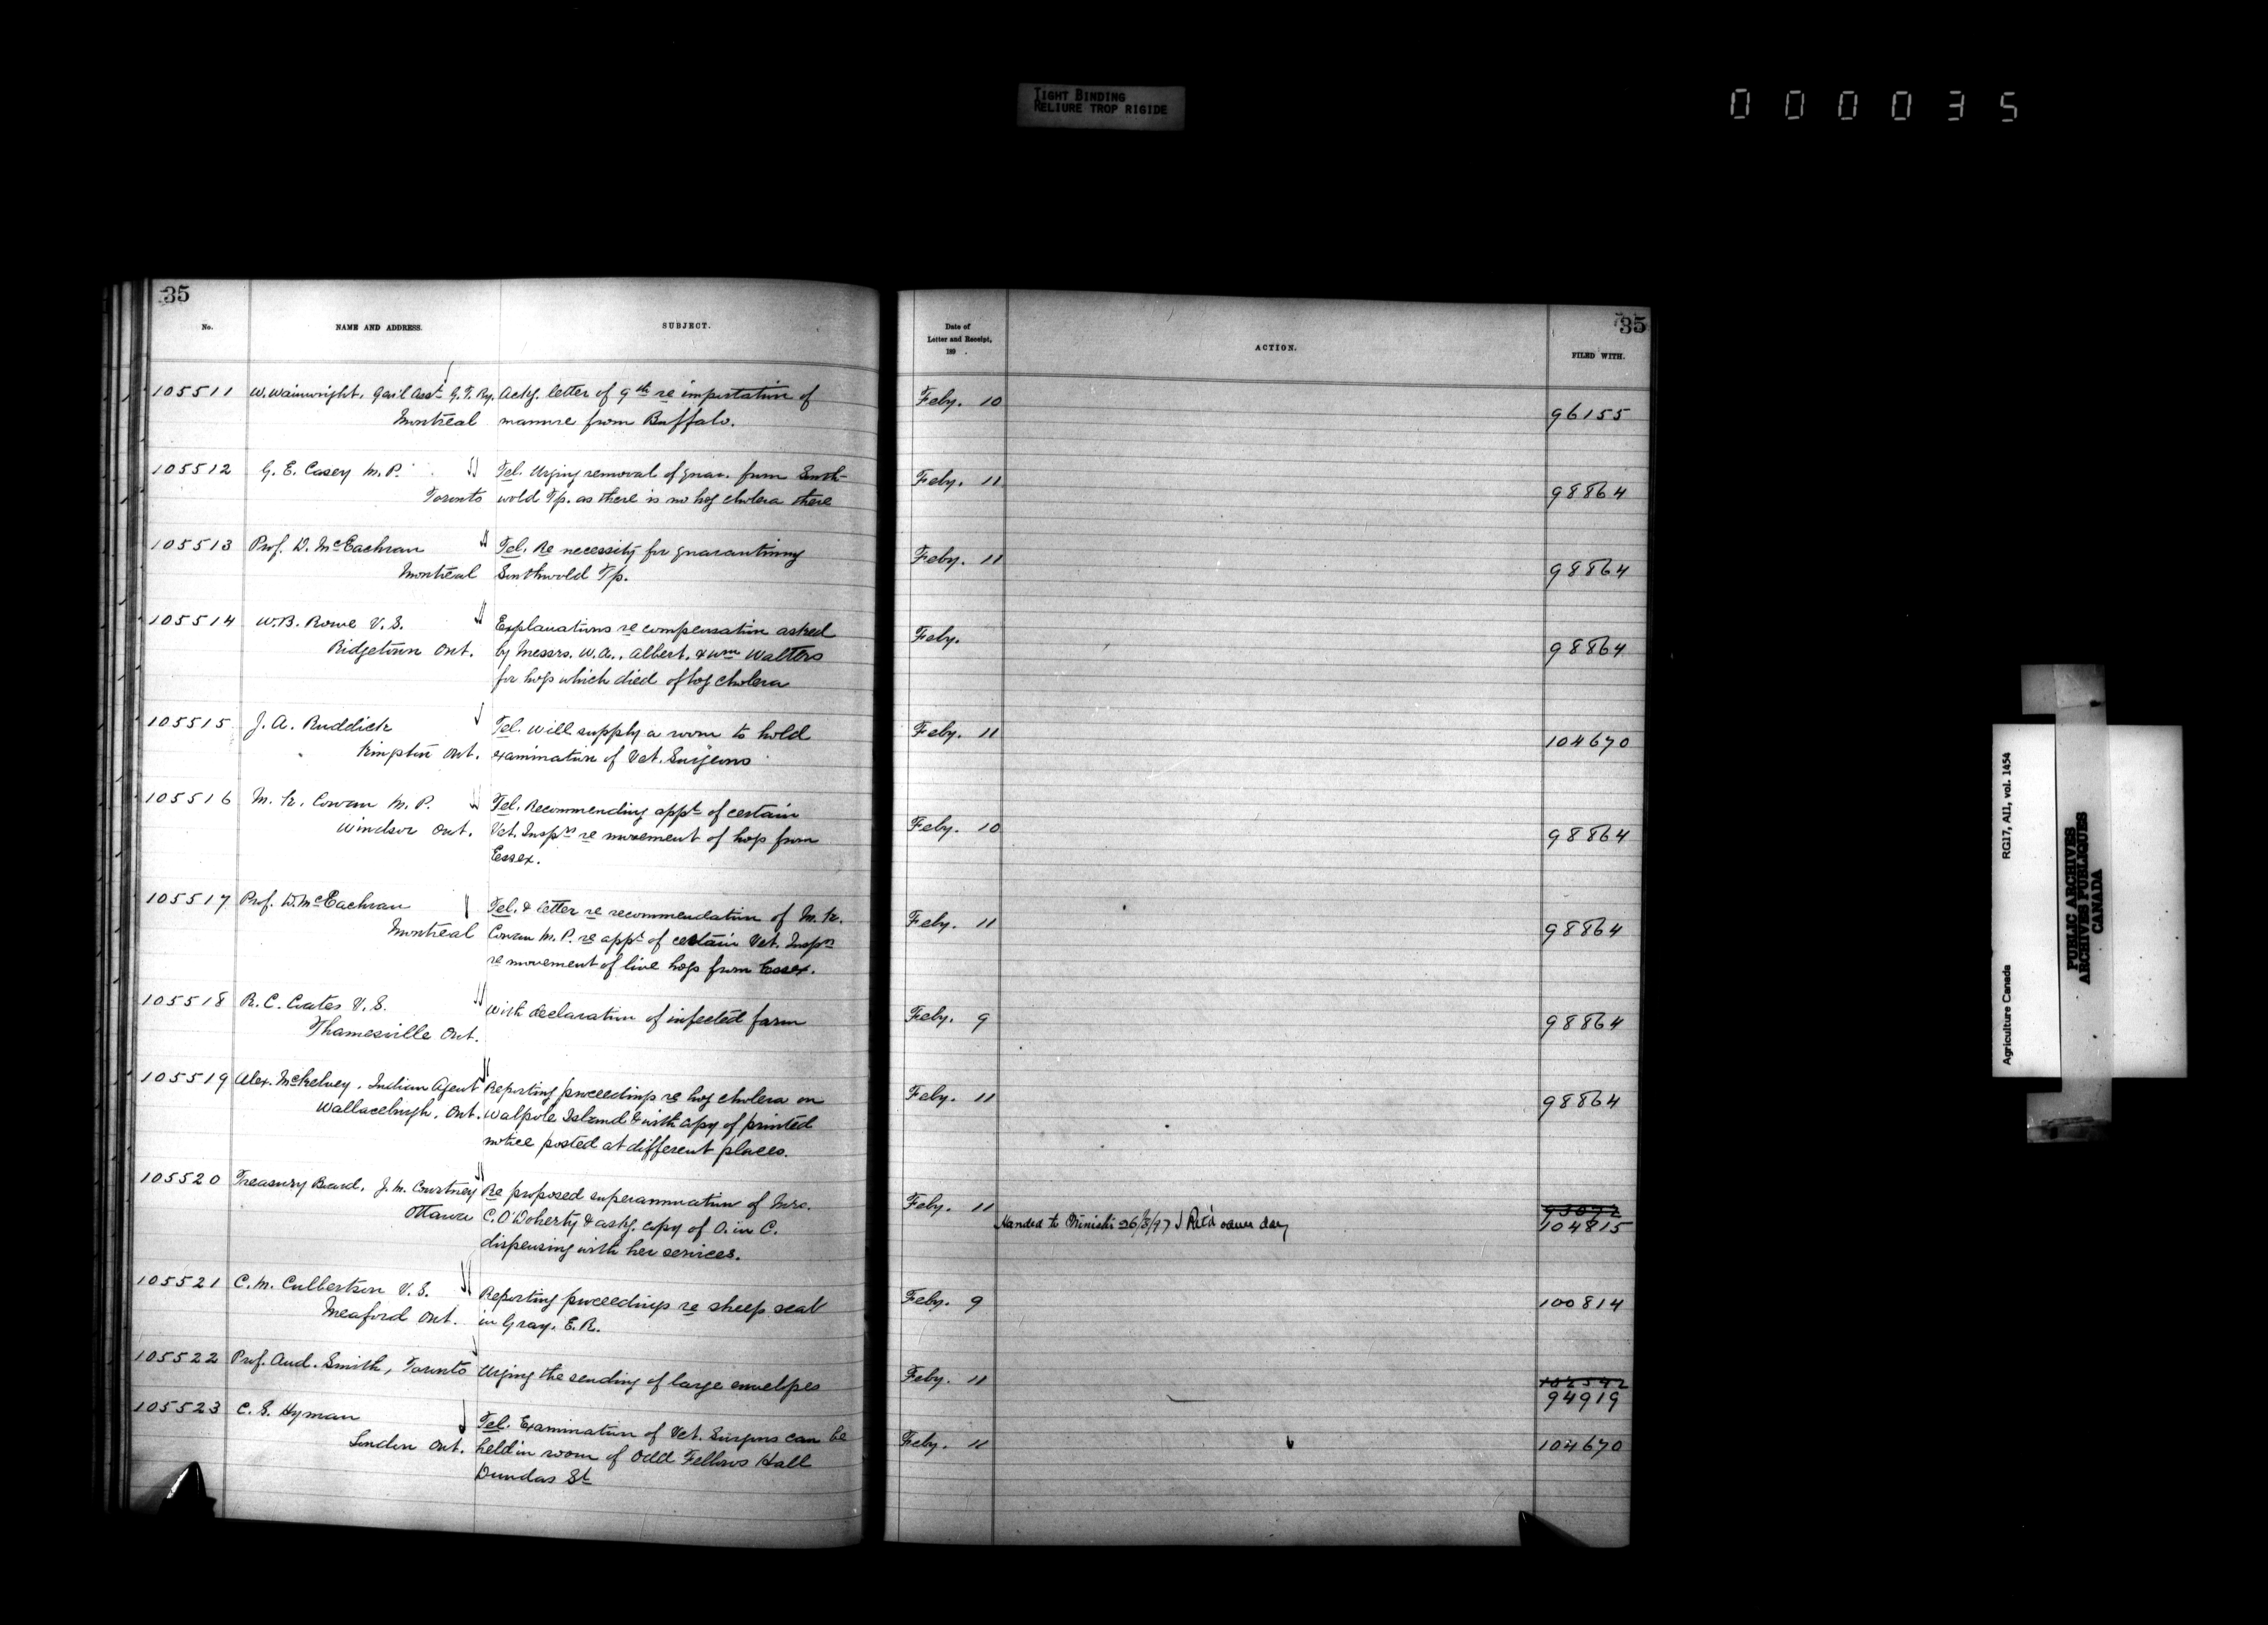 TIGHT BINDING
RELIURE TROP RIGIDE
000035
35
No.
NAME AND ADDRESS.
SUBJECT.
105511 W. Wainwright, Gen'l Asst. G.T. Ry. Ackg. letter of 9th re importation of
Montreal manure from Buffalo.
105512 G. E. Casey M.P. Tel. Urging removal of quar. from South-
Toronto wold Tp. as there is no hog cholera there
105513 Prof. D. McEachran Tel. Re necessity for quarantining
Montreal Southwold Tp.
105514 W.B. Rowe V.S. Explanations re compensation asked
Ridgetown Ont. by Messrs. W.A., Albert, & Wm Walters
for hogs which died of hog cholera
105515 J. A. Ruddick Tel. Will supply a room to hold
Kingston Ont. examination of Vet. Surgeons
105516 M. K. Cowan M.P. Tel. Recommending appt of certain
Windsor Ont. Vet. Insprs re movement of hogs from
Essex.
105517 Prof. D. McEachran Tel. & letter re recommendation of M. K.
Montreal Cowan M.P. re appt of certain Vet. Insprs
re movement of live hogs from Essex.
105518 R. C. Coates V.S. With declaration of infected farm
Thamesville Ont.
105519 Alex. McKelvey, Indian Agent Reporting proceedings re hog cholera on
Wallaceburgh, Ont. Walpole Island & with copy of printed
notice posted at different places.
105520 Treasury Board, J. M. Courtney Re proposed superannuation of Mrs.
Ottawa C. O'Doherty & askg. copy of O. in C.
dispensing with her services.
105521 C. M. Culbertson V.S. Reporting proceedings re sheep scab
Meaford Ont. in Gray, E.R.
105522 Prof. And. Smith, Toronto Urging the sending of large envelopes
105523 C. S. Hyman Tel. Examination of Vet. Surgeons can be
London Ont. held in room of Odd Fellows Hall
Dundas St
35
Date of
Letter and Receipt,
189 .
ACTION.
FILED WITH.
Feby. 10 96155
Feby. 11 98864
Feby. 11 98864
Feby. 98864
Feby. 11 104670
Feby. 10 98864
Feby. 11 98864
Feby. 9 98864
Feby. 11 98864
Feby. 11 93072
Handed to 26/3/97 Retd same day 104815
Feby. 9 100814
Feby. 11 102542
94919
Feby. 11 104670
Agriculture Canada RG17, AII, vol. 1454
PUBLIC ARCHIVES
ARCHIVES PUBLIQUES
CANADA